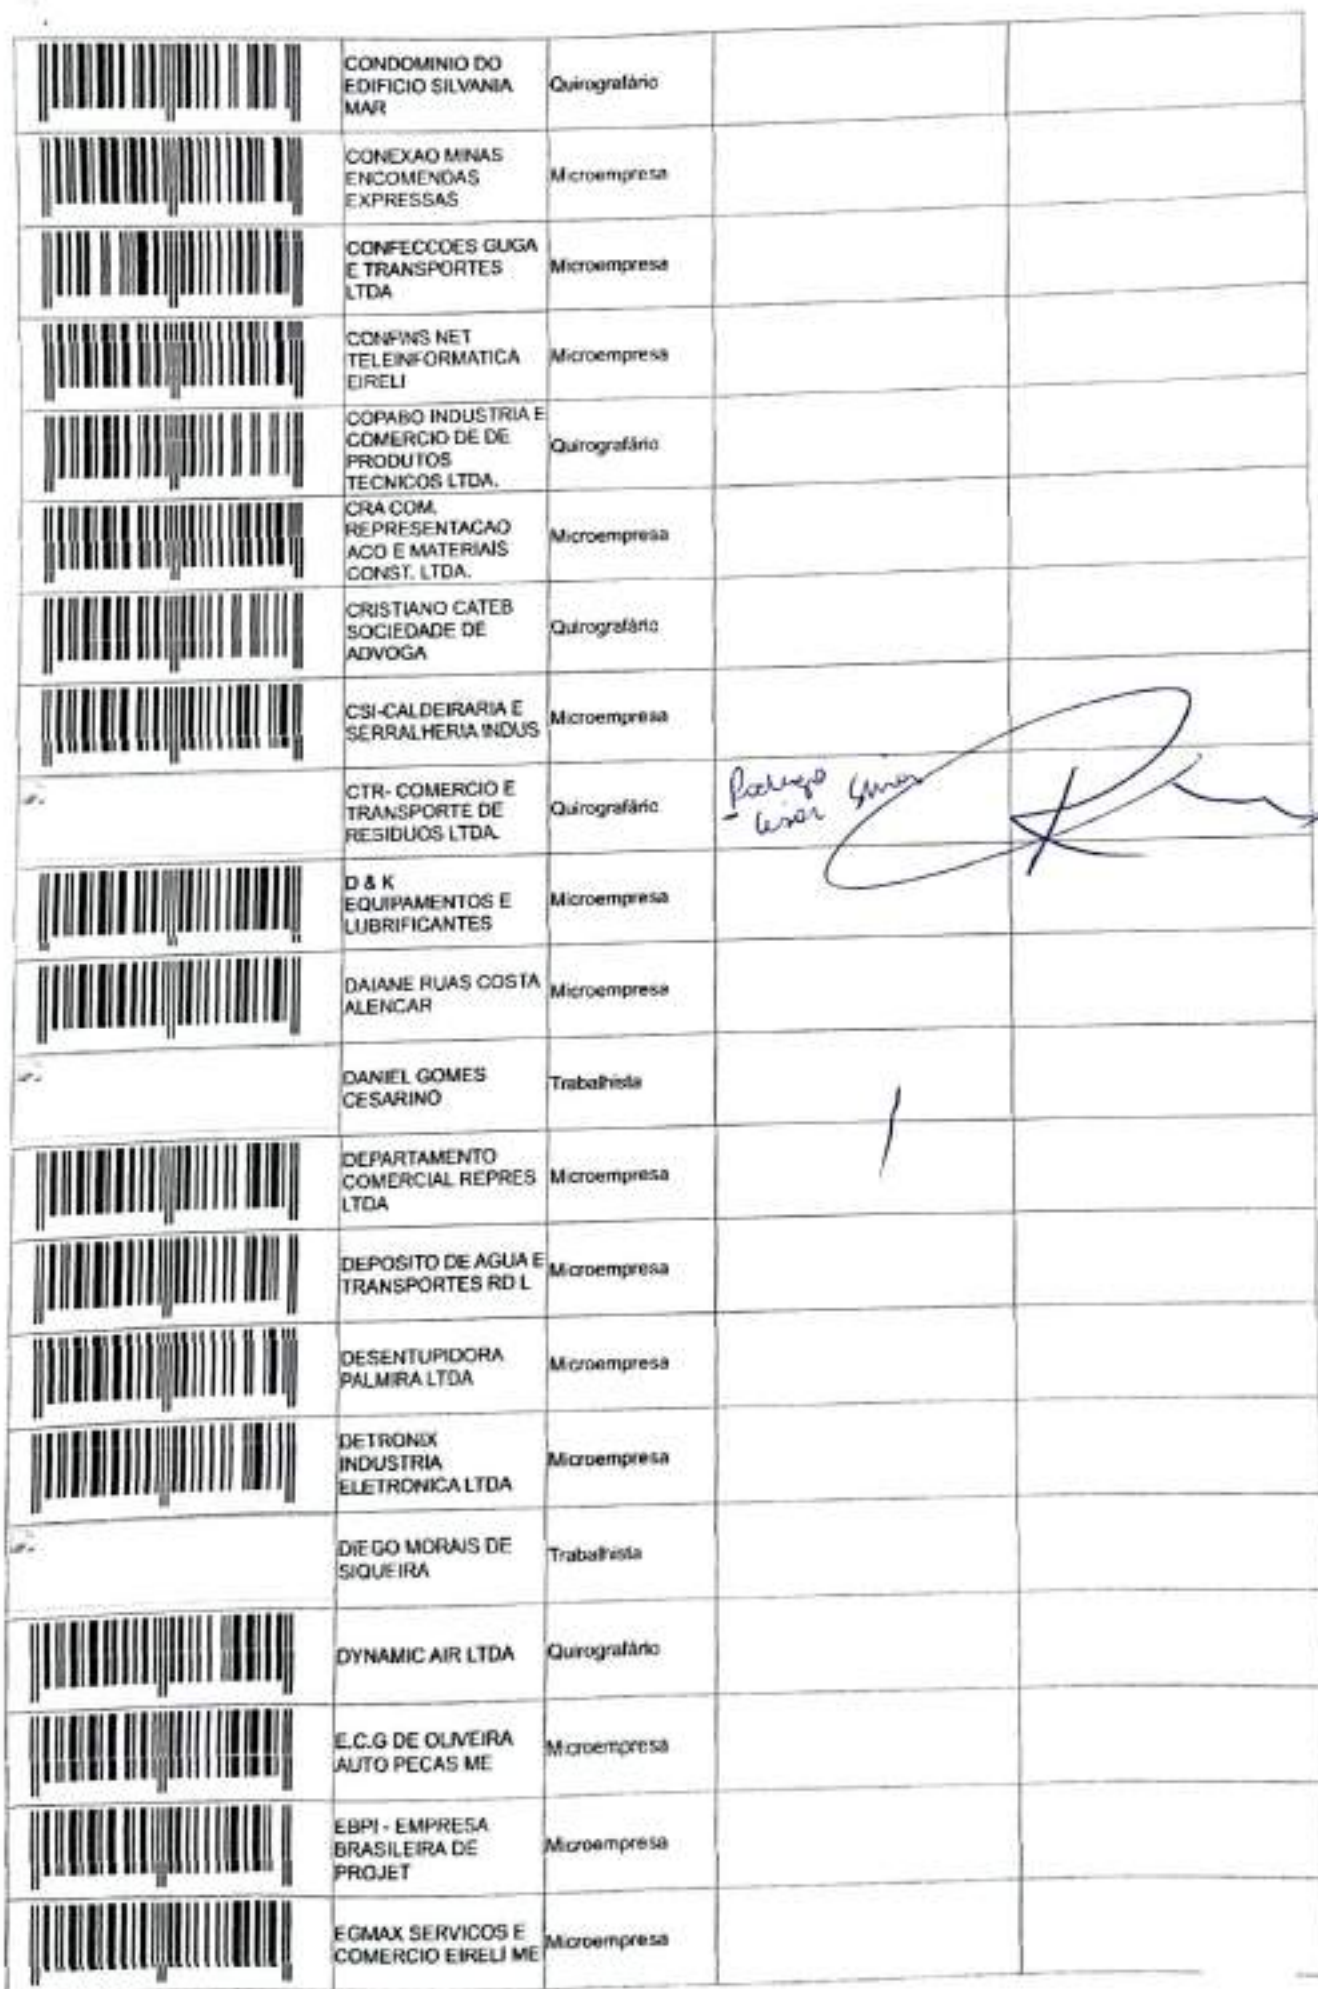 CONDOMINIO DO
EDIFICIO SILVANIA
MAR
Quirografário
CONEXAO MINAS
ENCOMENDAS
EXPRESSAS
Microempresa
CONFECCOES GUGA
E TRANSPORTES
LTDA
Microempresa
CONFINS NET
TELEINFORMATICA
EIRELI
Microempresa
COPABO INDUSTRIA E
COMERCIO DE DE
PRODUTOS
TECNICOS LTDA.
Quirografário
CRA COM.
REPRESENTACAO
ACO E MATERIAIS
CONST. LTDA.
Microempresa
CRISTIANO CATEB
SOCIEDADE DE
ADVOGA
Quirografário
CSI-CALDEIRARIA E
SERRALHERIA INDUS
Microempresa
CTR- COMERCIO E
TRANSPORTE DE
RESIDUOS LTDA.
Quirografário
Rodrigo
Cesar
D & K
EQUIPAMENTOS E
LUBRIFICANTES
Microempresa
DAIANE RUAS COSTA
ALENCAR
Microempresa
DANIEL GOMES
CESARINO
Trabalhista
DEPARTAMENTO
COMERCIAL REPRES
LTDA
Microempresa
DEPOSITO DE AGUA E
TRANSPORTES RD L
Microempresa
DESENTUPIDORA
PALMIRA LTDA
Microempresa
DETRONIX
INDUSTRIA
ELETRONICA LTDA
Microempresa
DIEGO MORAIS DE
SIQUEIRA
Trabalhista
DYNAMIC AIR LTDA
Quirografário
E.C.G DE OLIVEIRA
AUTO PECAS ME
Microempresa
EBPI - EMPRESA
BRASILEIRA DE
PROJET
Microempresa
EGMAX SERVICOS E
COMERCIO EIRELI ME
Microempresa